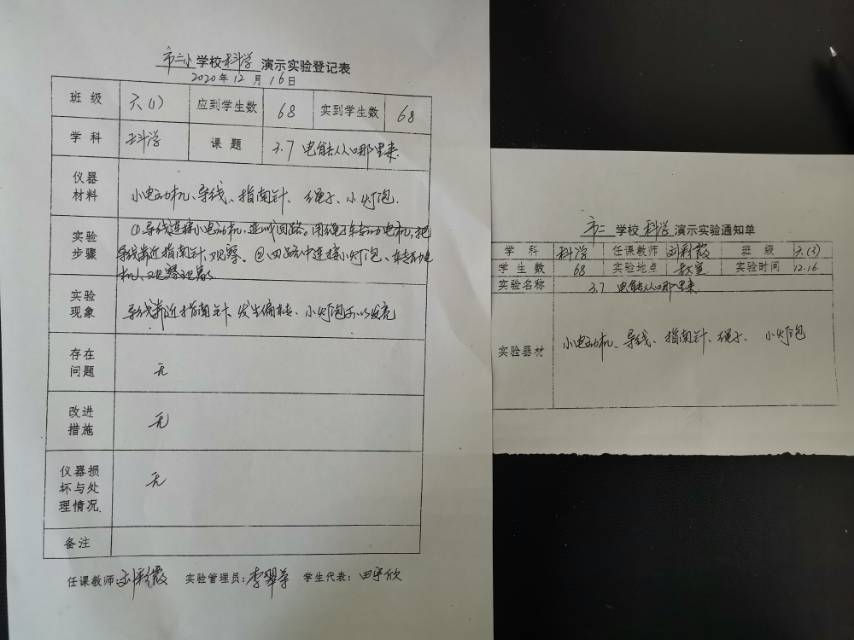 市二小学校科学演示实验登记表
2020年12月16日
班级 六(1) 应到学生数 68 实到学生数 68
学科 科学 课题 3.7 电能从哪里来
仪器材料 小电动机、导线、指南针、绳子、小灯泡.
实验步骤 ①导线连接小电动机,连成回路。用绳子转动电机,把
导线靠近指南针,观察。②回路中连接小灯泡、转动电
机、观察现象
实验现象 导线靠近指南针,发生偏转、小灯泡可以发光
存在问题 无
改进措施 无
仪器损坏与处理情况. 无
备注
任课教师 刘彩霞 实验管理员: 学生代表:
市二学校科学演示实验通知单
学科 科学 任课教师 刘彩霞 班级 六(3)
学生数 68 实验地点 教室 实验时间 12.16
实验名称 3.7 电能从哪里来
实验器材 小电动机、导线、指南针、绳子、小灯泡